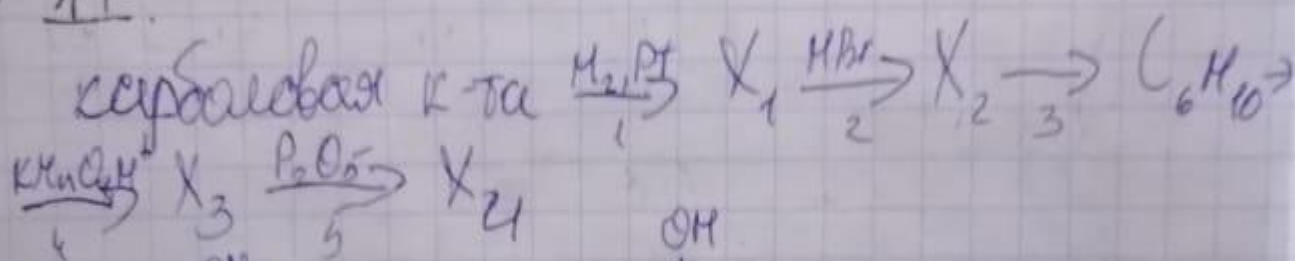 карболовая к-та H₂, Pt → 1 X₁ HBr → 2 X₂ → 3 C₆H₁₀ →
KMnO₄, H⁺ → 4 X₃ P₂O₅ → 5 X₄
OH